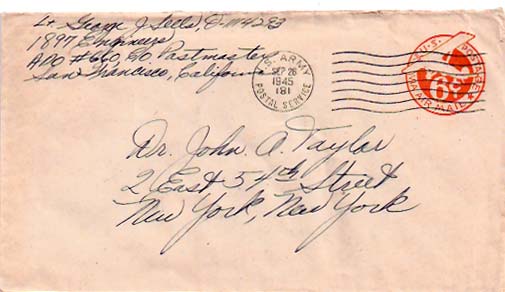 Lt. George J. Seels, O-1114283
1897 Engineers
APO #660, c/o Postmaster
San Francisco, California
U.S. ARMY
SEP 26
1945
181
POSTAL SERVICE
U.S. POSTAGE
6¢
VIA AIR MAIL
Dr. John A. Taylor
2 East 54th Street
New York, New York